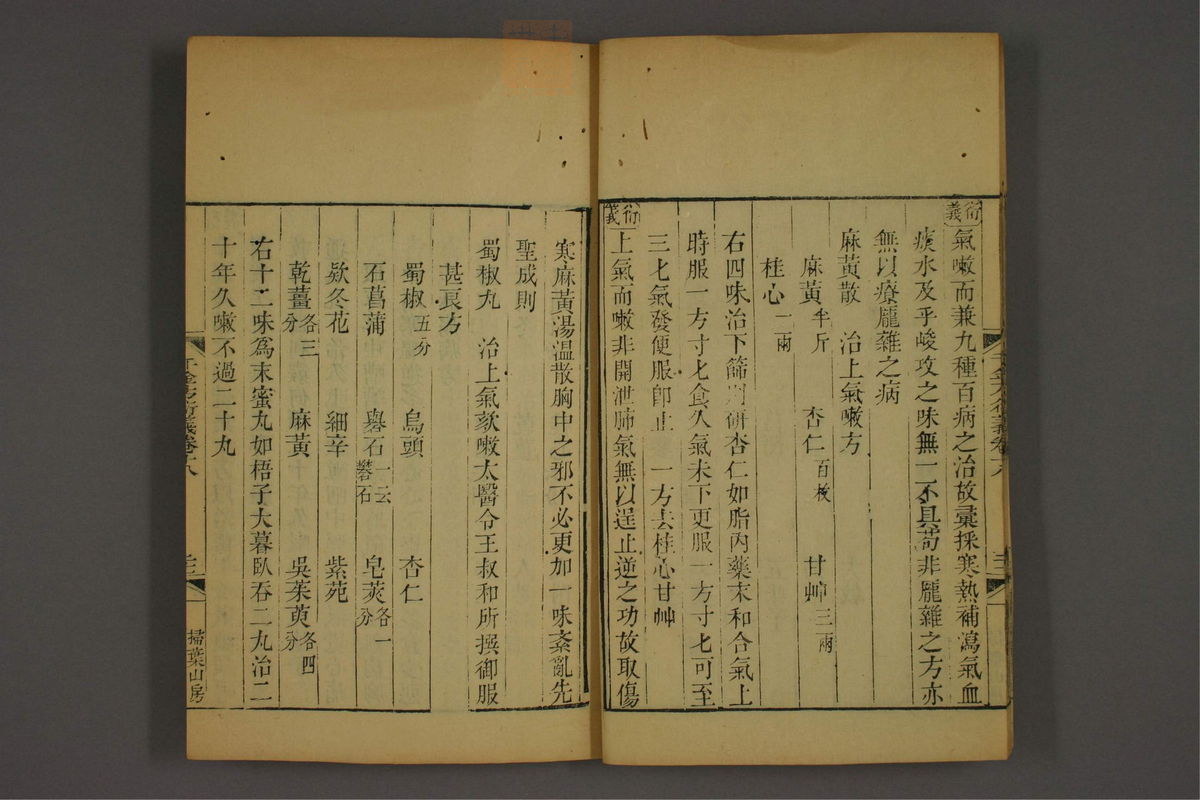 衍義
氣嗽而兼九種百病之治故彚採寒熱補瀉氣血
痰水及乎峻攻之味無一不具茍非龐雜之方亦
無以療龐雜之病
麻黃散 治上氣嗽方
麻黃半斤 杏仁百枚 甘艸三兩
桂心一兩
右四味治下篩別研杏仁如脂內藥末和合氣上
時服一方寸匕食久氣未下更服一方寸匕可至
三匕氣發便服卽止 一方去桂心甘艸
衍義
上氣而嗽非開泄肺氣無以逞止逆之功故取傷
寒麻黃湯溫散胸中之邪不必更加一味紊亂先
聖成則
蜀椒丸 治上氣欬嗽太醫令王叔和所撰御服
甚良方
蜀椒五分 烏頭 杏仁
石菖蒲 礜石一云礬石 皂莢各一分
欵冬花 細辛 紫菀
乾薑各三分 麻黃 吳茱萸各四分
右十二味爲末蜜丸如梧子大暮臥吞二丸治二
十年久嗽不過二十丸
千金方衍義卷十八
掃葉山房